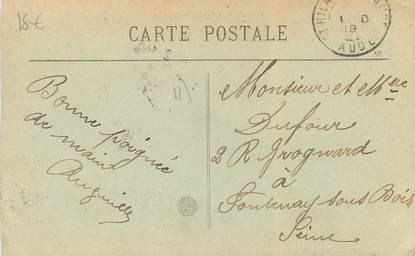 18€
CARTE POSTALE
1 - O
19
AUDE
Monsieur et Mme
Dufour
2 R
à
Fontenay sous Bois
Seine
Bonne poignée
de main